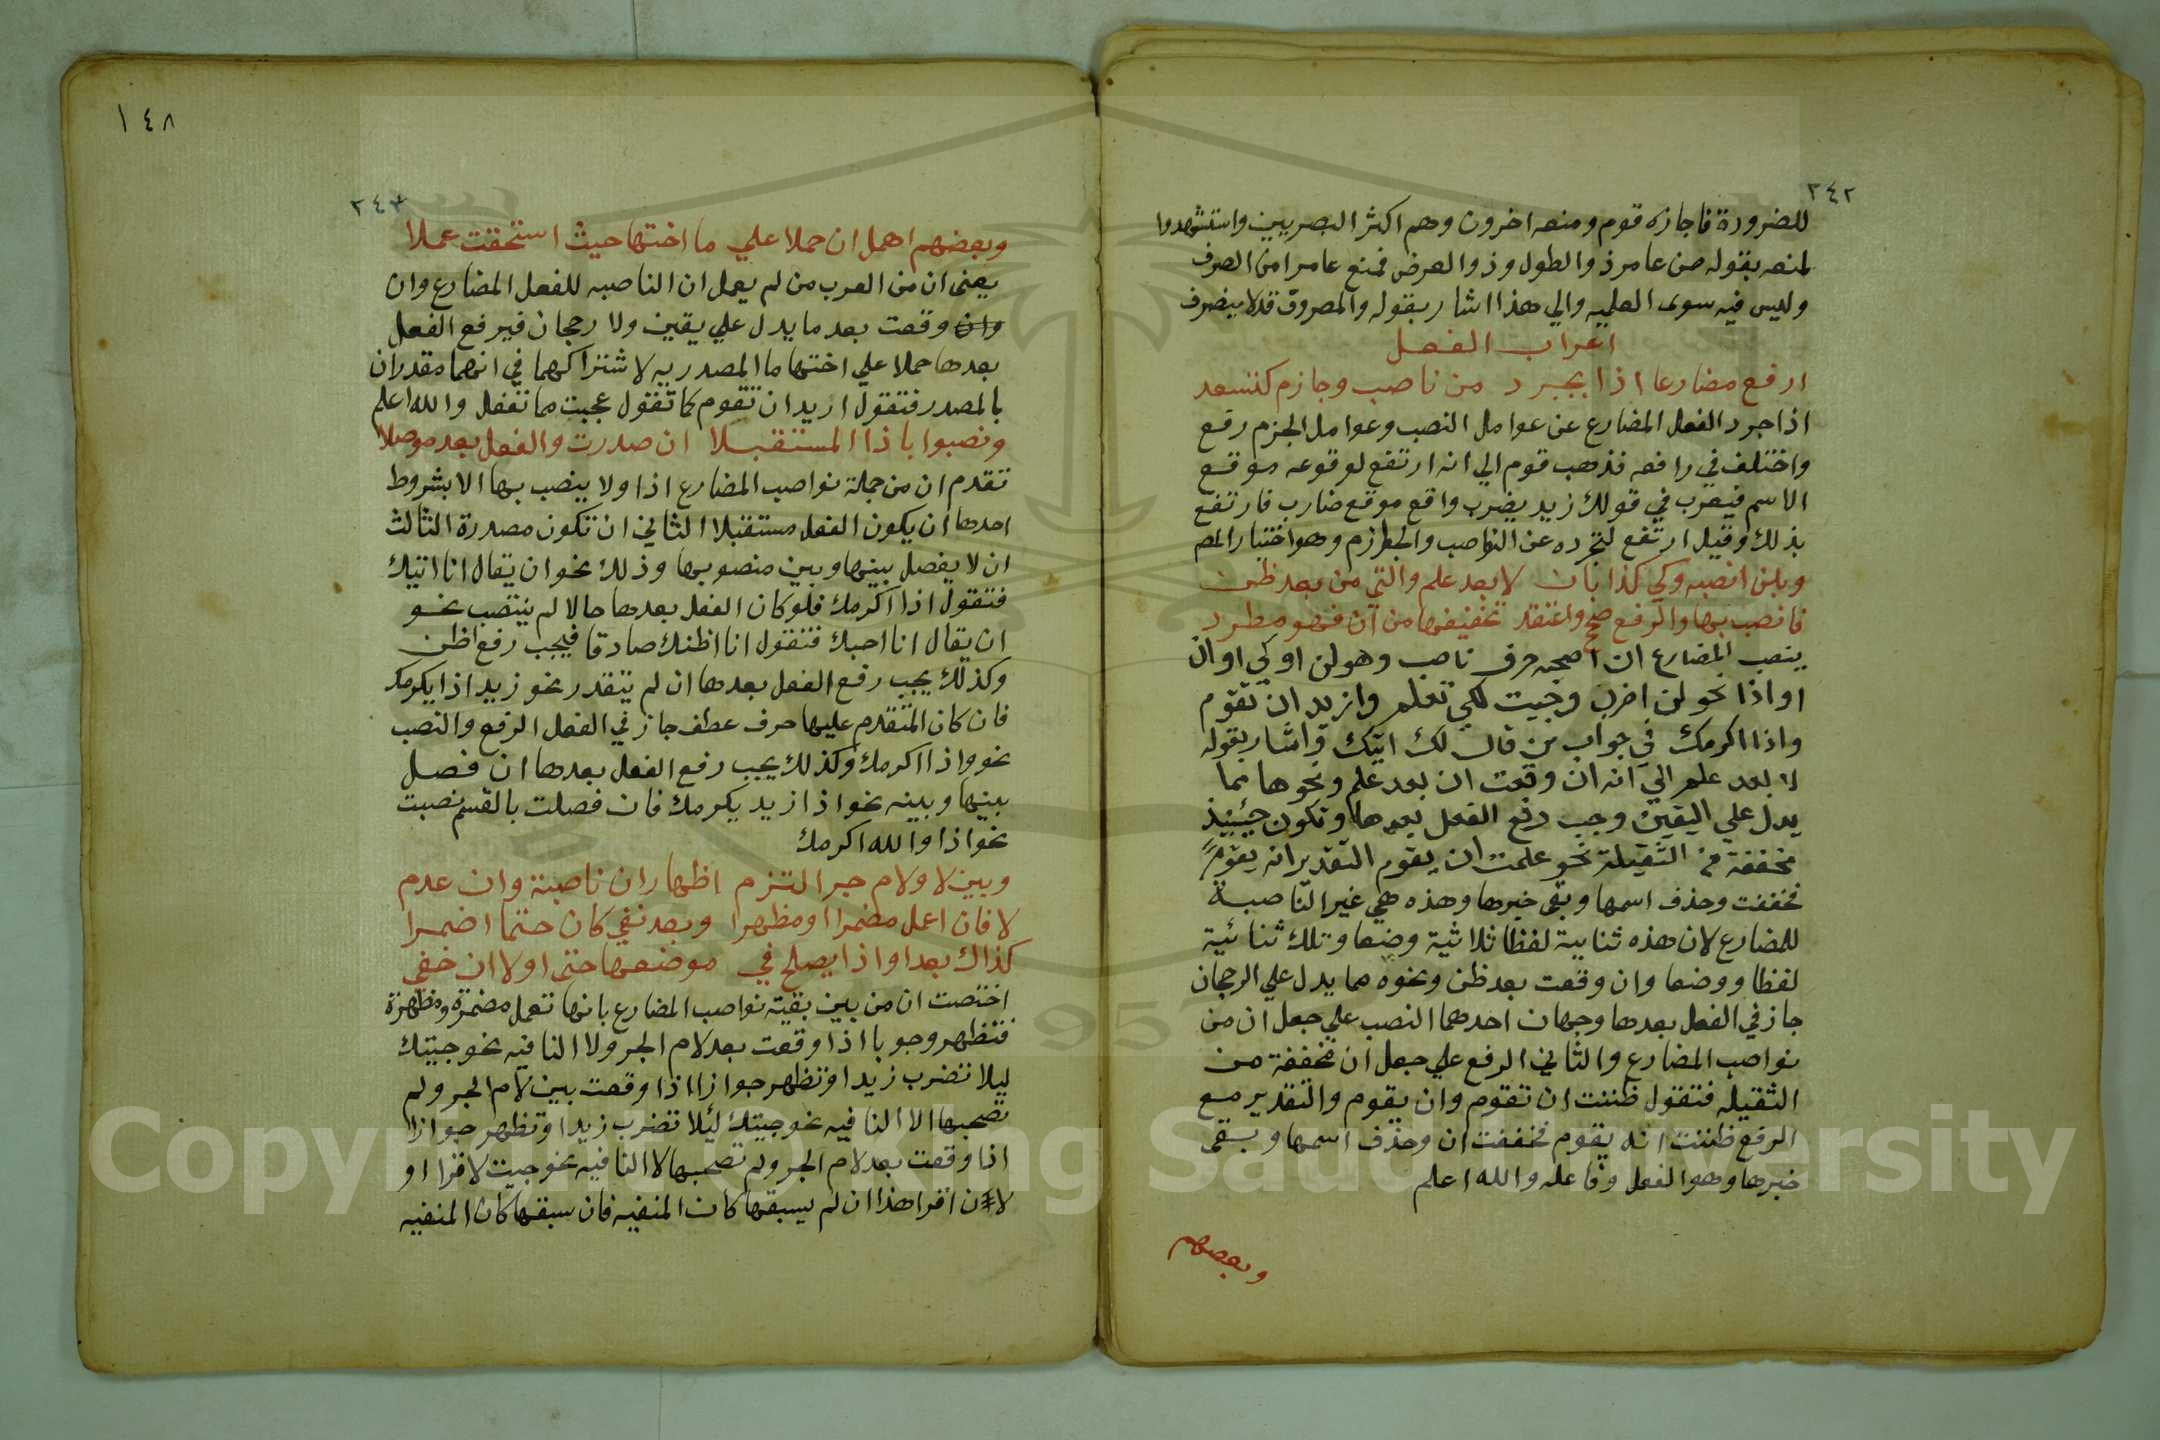 ٢٤٢
للضرورة فاجازه قوم ومنعه اخرون وهم اكثر البصريين واستشهدوا
لمنعه بقوله من عامر ذو الطول وذو العرض فمنع عامر من الصرف
وليس فيه سوى العلميه والي هذا اشار بقوله والمصروف قد لا ينصرف
اعراب الفعل
ارفع مضارعا اذا يجرد من ناصب وجازم كتسعد
اذا جرد الفعل المضارع عن عوامل النصب وعوامل الجزم رفع
واختلف في رافعه فذهب قوم الي انه ارتفع لوقوعه موقع
الاسم فيعرب في قولك زيد يضرب واقع موقع ضارب فارتفع
بذلك وقيل ارتفع لتجرده عن النواصب والجوازم وهو اختيار المص
وبلن انصبه وكي كذا بان لا بعد علم والتي من بعد ظن
فانصب بها والرفع صحح واعتقد تخفيفها من ان فهو مطرد
ينصب المضارع ان اصحبه حرف ناصب وهو لن او كي او ان
او اذا نحو لن اضرب وجيت لكي تعلم واريد ان تقوم
واذا اكرمك في جواب من قال لك اتيك واشار بقوله
لا بعد علم الي انه ان وقعت ان بعد علم ونحوها مما
يدل علي اليقين وجب رفع الفعل بعدها وتكون حينئيذ
مخففة من الثقيلة نحو علمت ان يقوم التقدير انه يقوم
فخففت وحذف اسمها وبقى خبرها وهذه هي غير الناصبة
للمضارع لان هذه ثنايية لفظا ثلاثية وضعا وتلك ثنائية
لفظا ووضعا وان وقعت بعد ظن ونحوه مما يدل علي الرجحان
جاز في الفعل بعدها وجهان احدهما النصب علي جعل ان من
نواصب المضارع والثاني الرفع علي جعل ان مخففة من
الثقيله فتقول ظننت ان تقوم وان يقوم والتقدير مع
الرفع ظننت انه يقوم فخففت ان وحذف اسمها وبقى
خبرها وهو الفعل وفاعله والله اعلم
وبعضهم
١٤٨
٢٤٣
وبعضهم اهمل ان حملا علي ما اختها حيث استحقت عملا
يعنى ان من العرب من لم يعمل ان الناصبه للفعل المضارع وان
وان وقعت بعد ما يدل علي يقين ولا رجحان فيرفع الفعل
بعدها حملا علي اختها ما المصدريه لاشتراكهما في انهما مقدران
بالمصدر فتقول اريد ان تقوم كما تقول عجبت مما تفعل والله اعلم
ونصبوا باذا المستقبلا ان صدرت والفعل بعد موصلا
تقدم ان من جملة نواصب المضارع اذا ولا ينصب بها الا بشروط
احدها ان يكون الفعل مستقبلا الثاني ان تكون مصدرة الثالث
ان لا يفصل بينها وبين منصوبها وذلك نحو ان يقال انا اتيك
فتقول اذا اكرمك فلو كان الفعل بعدها حالا لم ينتصب نحو
ان يقال انا احبك فتقول انا اظنك صادقا فيجب رفع اظن
وكذلك يجب رفع الفعل بعدها ان لم يتقدر نحو زيد اذا يكرمك
فان كان المتقدم عليها حرف عطف جاز في الفعل الرفع والنصب
نحو واذا اكرمك وكذلك يجب رفع الفعل بعدها ان فصل
بينها وبينه نحو اذا زيد يكرمك فان فصلت بالقسم نصبت
نحو اذا والله اكرمك
وبين لا ولام جر التزم اظهار ان ناصبة وان عدم
لا فان اعمل مضمرا او مظهرا وبعد نفي كان حتما اضمرا
كذاك بعد او اذا يصلح في موضعها حتى او لا ان خفي
اختصت ان من بين بقية نواصب المضارع بانها تعمل مضمرة ومظهرة
فتظهر وجوبا اذا وقعت بعد لام الجر ولا النافيه نحو جيتك
ليلا تضرب زيدا وتظهر جوازا اذا وقعت بين لام الجر ولم
تصحبها الا النافيه نحو جيتك لئلا تضرب زيدا وتظهر جوازا
اذا وقعت بعد لام الجر ولم تصحبها لا النافيه نحو جيت لاقرا او
لان اقرا هذا ان لم يسبقها كان المنفيه فان سبقها كان المنفيه
Copyright © King Saud University
1957